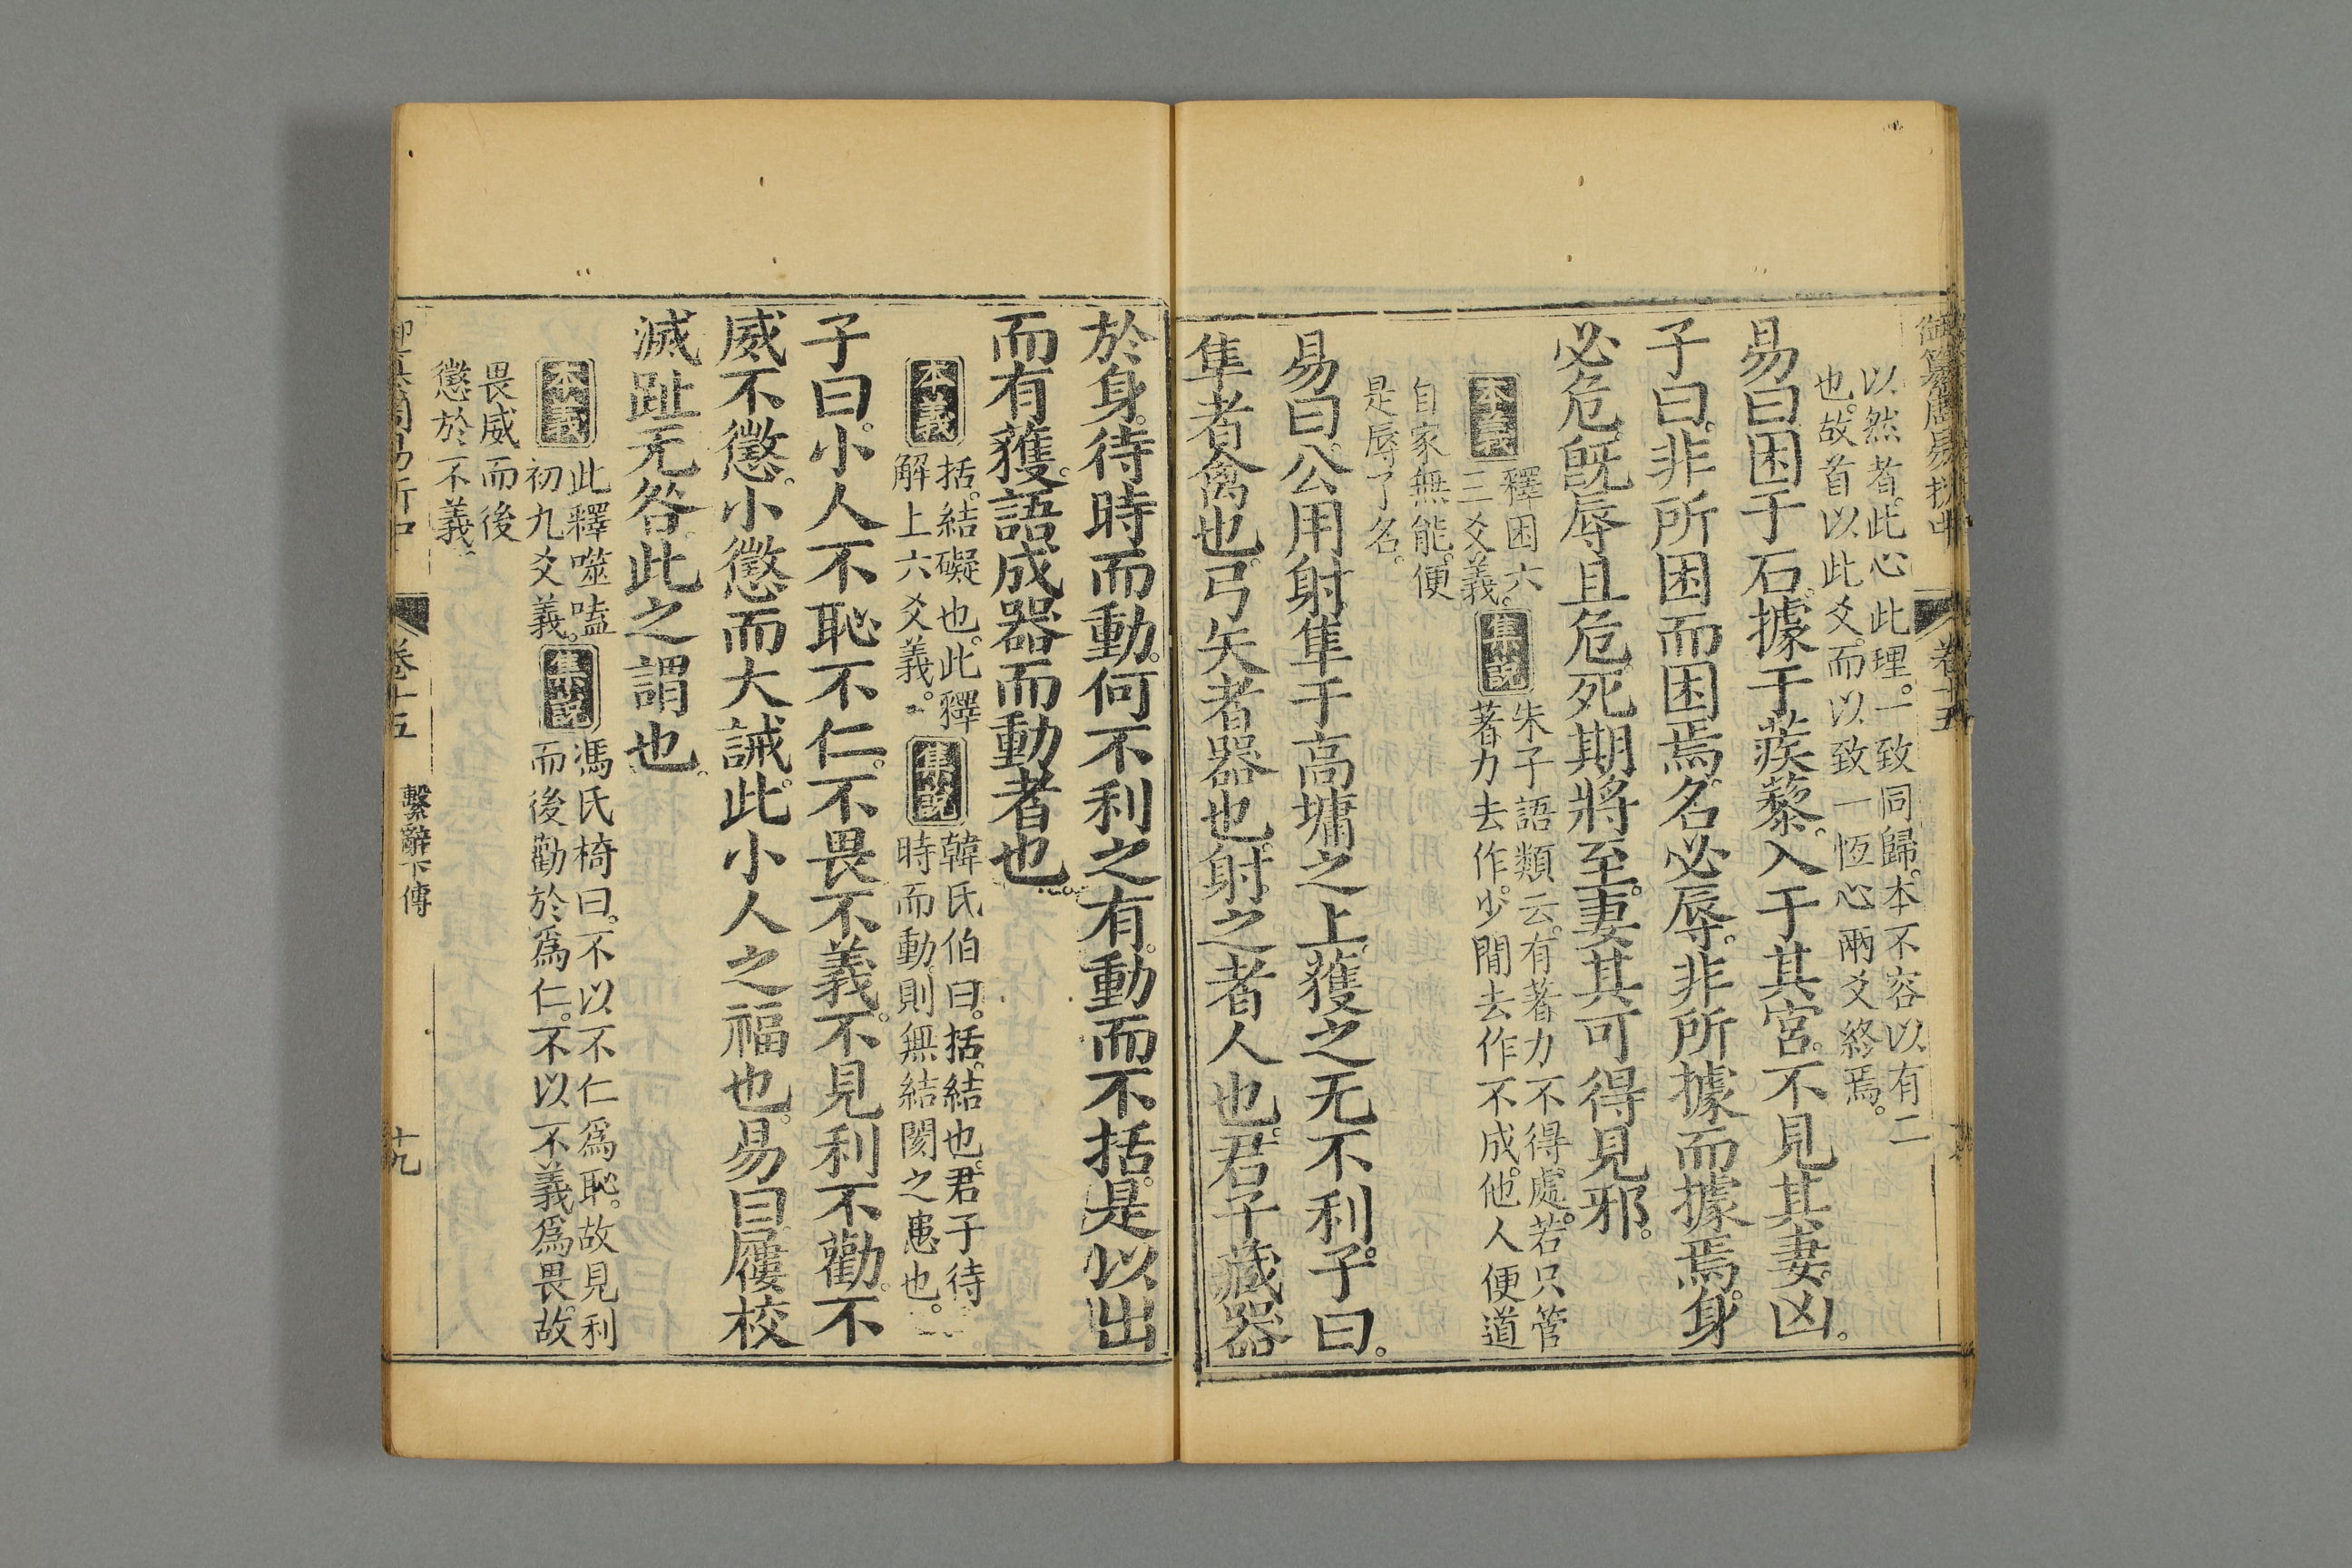 御纂周易折中 卷十五
以然者。此心此理。一致同歸。本不容以有二
也。故首以此爻。而以致一恆心兩爻終焉。
易曰困于石。據于蒺藜。入于其宮。不見其妻。凶。
子曰。非所困而困焉。名必辱。非所據而據焉。身
必危。旣辱且危。死期將至。妻其可得見邪。
本義
釋困六
三爻義。
集說
朱子語類云。有著力不得處。若只管
著力去作。少間去作不成。他人便道
自家無能。便
是辱了名。
易曰。公用射隼于高墉之上。獲之无不利。子曰。
隼者禽也。弓矢者器也。射之者人也。君子藏器
於身。待時而動。何不利之有。動而不括。是以出
而有獲。語成器而動者也。
本義
括。結礙也。此釋
解上六爻義。
集說
韓氏伯曰。括。結也。君子待
時而動。則無結閡之患也。
子曰。小人不恥不仁。不畏不義。不見利不勸。不
威不懲。小懲而大誡。此小人之福也。易曰。屨校
滅趾无咎。此之謂也。
本義
此釋噬嗑
初九爻義。
集說
馮氏椅曰。不以不仁爲恥。故見利
而後勸於爲仁。不以不義爲畏。故
畏威而後
懲於不義
卷十五 繫辭下傳 十九